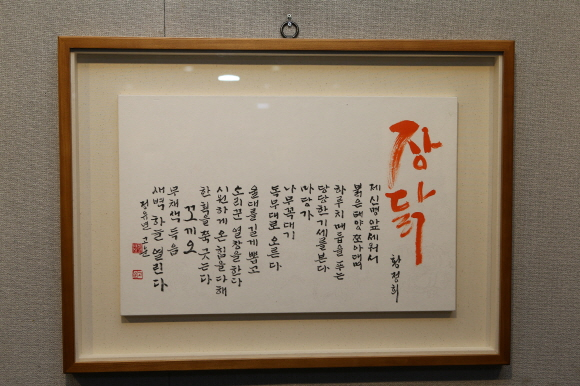 장닭
황정희
제 신명 앞세워서
붉은 태양 쪼아대며
하루치 매듭을 푸는
당당한 기세를 본다
마당가
나무꼭대기
독무대로 오른다
울대를 길게 뽑고
소리꾼 열창을 한다
시원하게 온 힘을 다해
한 획을 쭉 긋는다
꼬끼오
무채색 득음
새벽 하늘 열린다